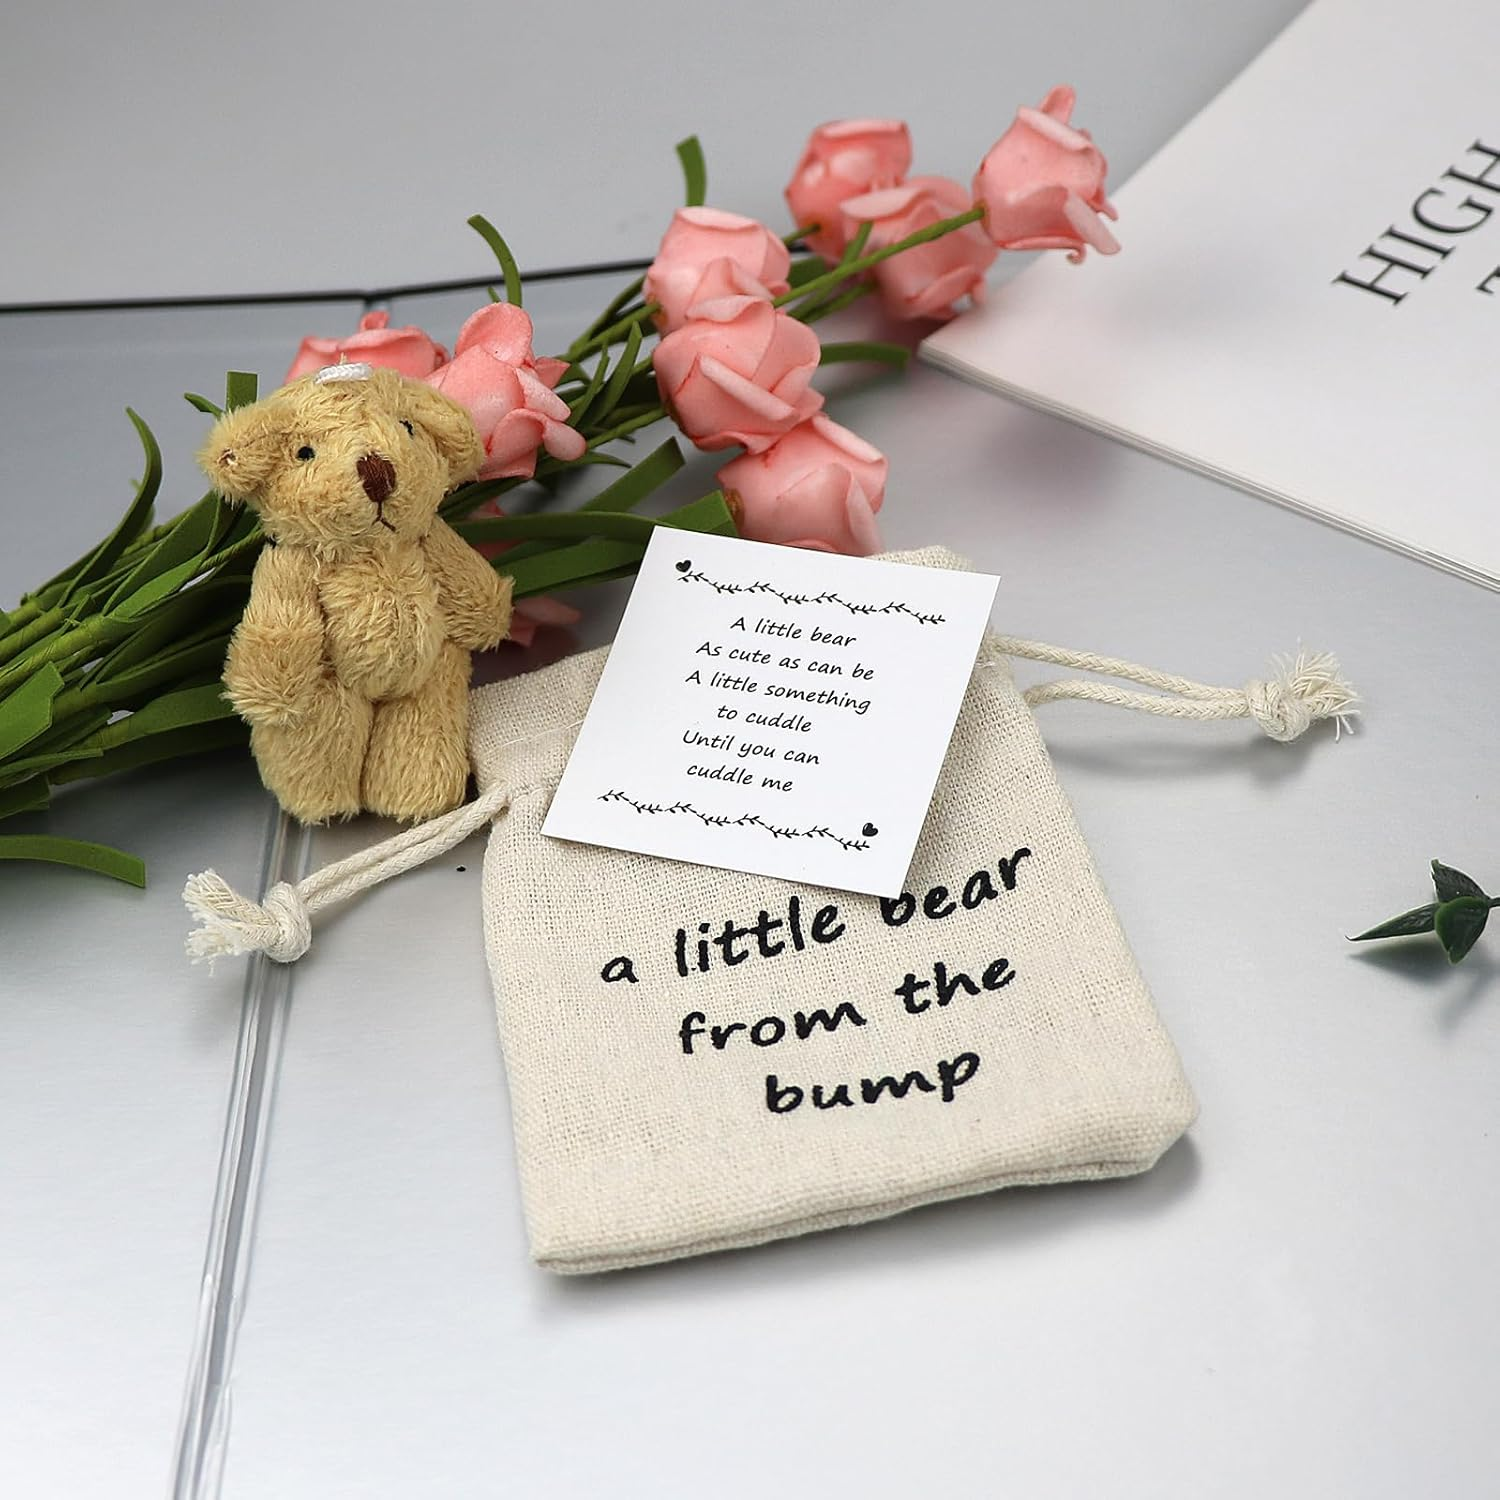 HIGH
A little bear
As cute as can be
A little something
to cuddle
Until you can
cuddle me
a little bear
from the
bump